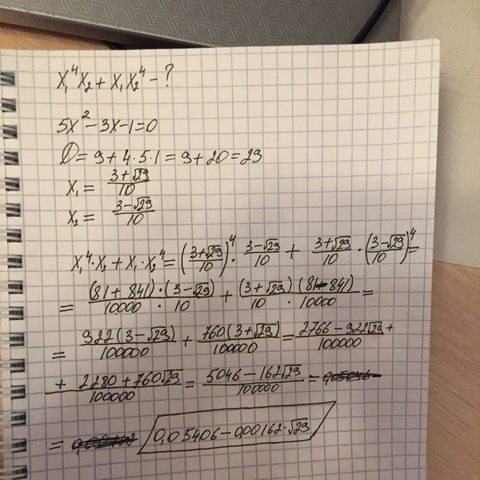 x₁⁴x₂ + x₁x₂⁴ - ?
5x² - 3x - 1 = 0
D = 9 + 4·5·1 = 9 + 20 = 29
x₁ = (3+√29)/10
x₂ = (3-√29)/10
x₁⁴·x₂ + x₁·x₂⁴ = ((3+√29)/10)⁴ · (3-√29)/10 + (3+√29)/10 · ((3-√29)/10)⁴ =
= (81 + 841)·(3-√29)/10000·10 + (3+√29)·(81-841)/10·10000 =
= 922(3-√29)/100000 + 760(3+√29)/100000 = (2766 - 922√29)/100000 +
+ (2280 + 760√29)/100000 = (5046 - 162√29)/100000 =
= 0,05406 - 0,00162·√29